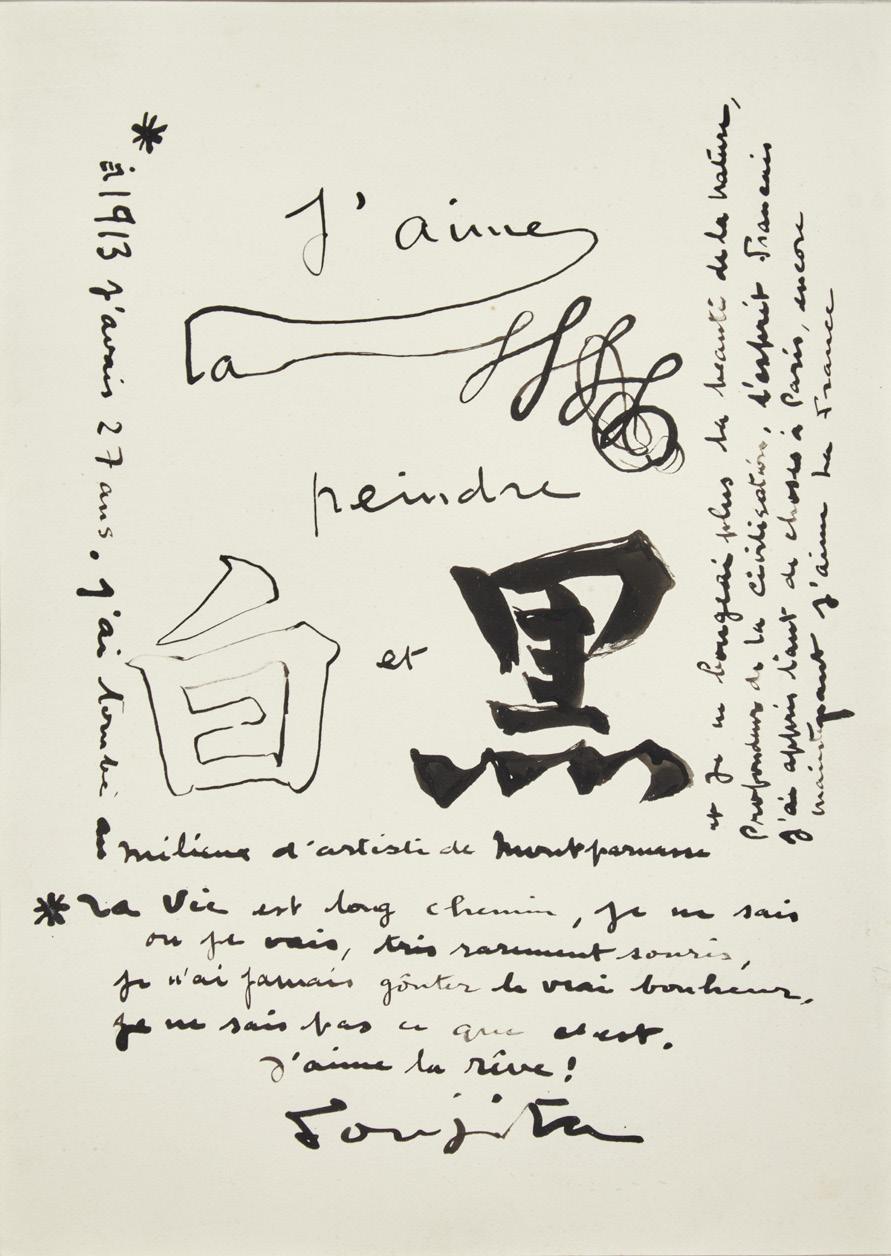 J'aime
la
peindre
白 et 黒
* à 1913 j'avais 27 ans. j'ai tombé au
milieux d'artiste de Montparnasse
et je ne bougeai plus la beauté de la nature,
Profondeur de la civilisation, l'esprit Francais
j'ai appris tant de choses à Paris, encore
maintenant j'aime La France
* La Vie est long chemin, je ne sais
ou je vais, tris rarement souris,
je n'ai jamais gôuter le vrai bonheur,
je ne sais pas ce que c'est.
J'aime la rêve!
Foujita